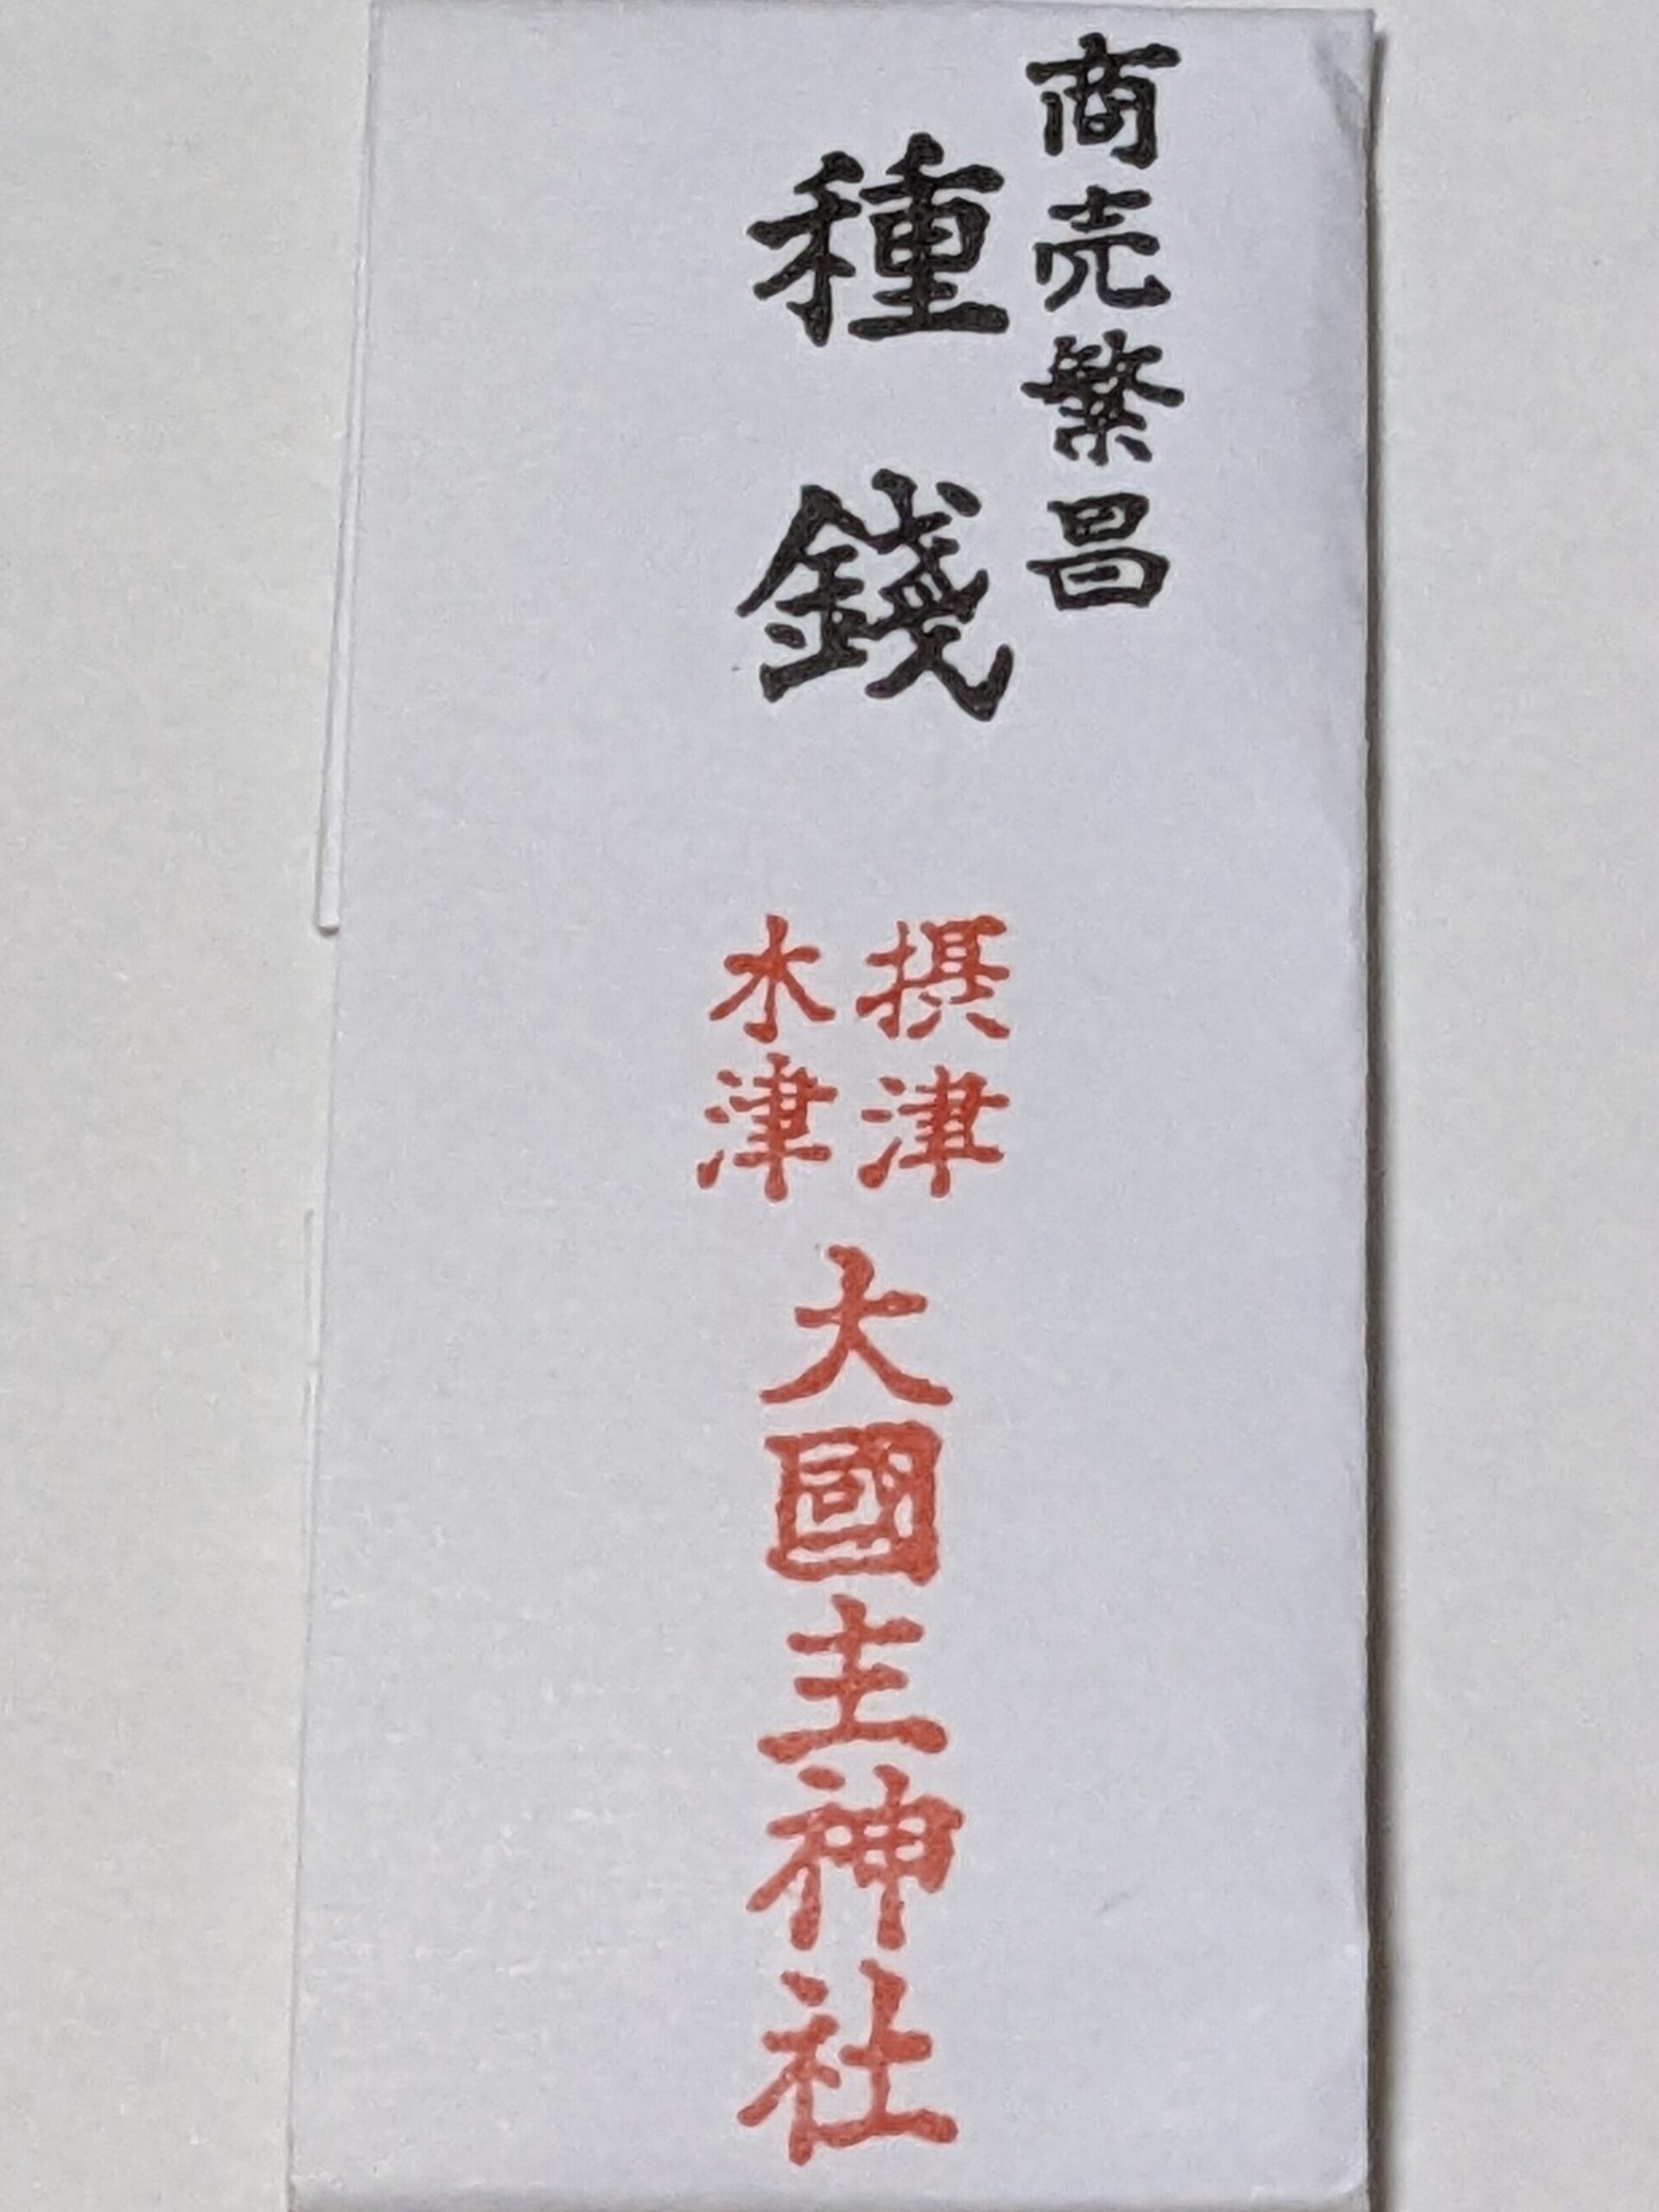 商売繁昌
種錢
摂津
木津
大國主神社